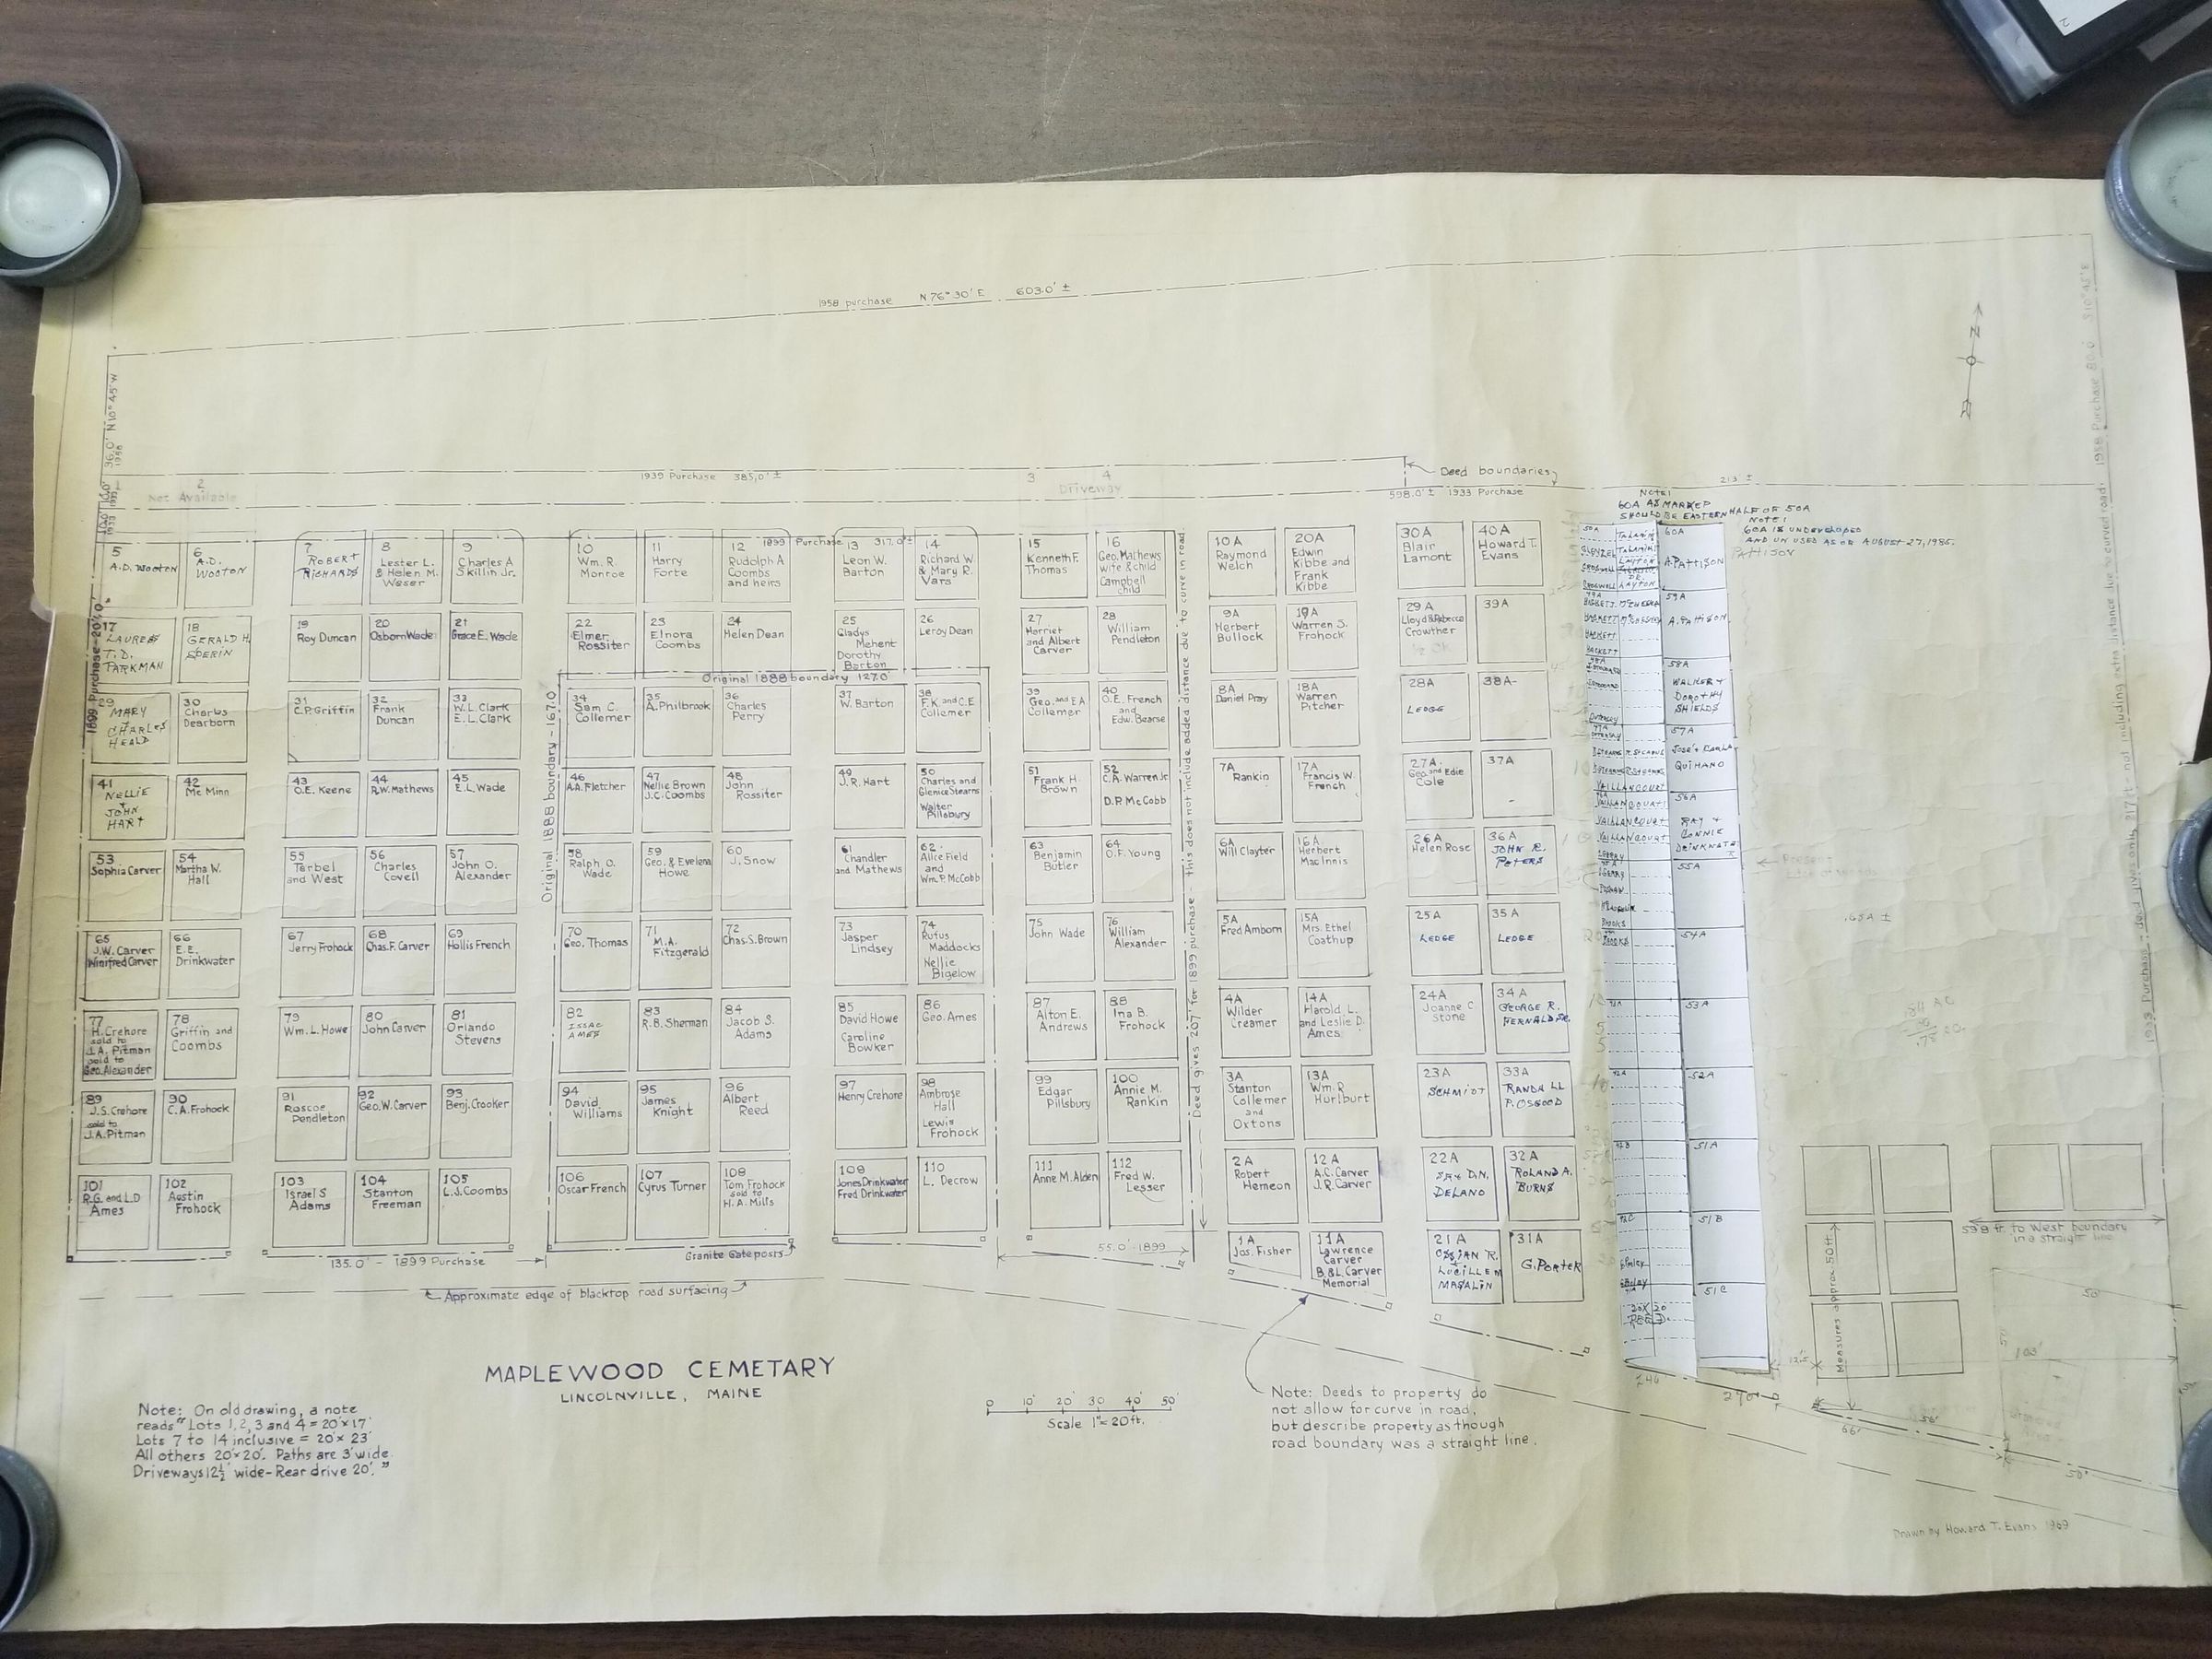 1958 purchase N 76° 30' E 603.0' ±
N
36.0' N 10° 45' W
1958
1939 Purchase 385.0' ±
Deed boundaries
598.0' ± 1933 Purchase
213' ±
1
2
Not Available
3
4
Driveway
1899 Purchase 317.0' ±
1899 Purchase-207.0'
NOTE!
60A AS MARKED
SHOULD BE EASTERN HALF OF 50A
NOTE!
60A IS UNDEVELOPED
AND UN USED AS OF AUGUST 27, 1985.
PATTISON
5
A.D. WOOTON
6
A.D.
WOOTON
7
ROBERT
RICHARDS
8
Lester L.
& Helen M.
Weser
9
Charles A
Skillin Jr.
10
Wm. R.
Monroe
11
Harry
Forte
12
Rudolph A
Coombs
and heirs
13
Leon W.
Barton
14
Richard W
& Mary R.
Vars
15
Kenneth F.
Thomas
16
Geo. Mathews
wife & child
Campbell
child
10 A
Raymond
Welch
20A
Edwin
Kibbe and
Frank
Kibbe
30 A
Blair
Lamont
40 A
Howard T.
Evans
60A
A. PATTISON
17
LAURESS
T. D.
PARKMAN
18
GERALD H.
19
Roy Duncan
20
Osborn Wade
21
Grace E. Wade
22
Elmer
Rossiter
23
Elnora
Coombs
24
Helen Dean
25
Gladys
Mehent
Dorothy
Barton
26
Leroy Dean
27
Harriet
and Albert
Carver
28
William
Pendleton
9A
Herbert
Bullock
19A
Warren S.
Frohock
29 A
Lloyd & Rebecca
Crowther
39A
59A
A. PATTISON
Original 1888 boundary 127.0'
Original 1888 boundary - 167.0
29
MARY
+
CHARLES
HEALD
30
Charles
Dearborn
31
C.P. Griffin
32
Frank
Duncan
33
W. L. Clark
E. L. Clark
34
Sam C.
Collemer
35
A. Philbrook
36
Charles
Perry
37
W. Barton
38
F.K. and C.E
Collemer
39
Geo. and E A
Collemer
40
O.E. French
and
Edw. Bearse
8A
Daniel Pray
18A
Warren
Pitcher
28A
LEDGE
38A-
58A
WALKER +
DOROTHY
SHIELDS
41
NELLIE
+
JOHN
HART
42
Mc Minn
43
O.E. Keene
44
R.W. Mathews
45
E.L. Wade
46
A.A. Fletcher
47
Nellie Brown
J.C. Coombs
48
John
Rossiter
49
J.R. Hart
50
Charles and
Glenice Stearns
Walter
Pillsbury
51
Frank H.
Brown
52
C.A. Warren Jr
D.P. McCobb
7A
Rankin
17A
Francis W.
French
27A
Geo. and Edie
Cole
37A
57A
QUIMANO
53
Sophia Carver
54
Martha W.
Hall
55
Terbel
and West
56
Charles
Covell
57
John O.
Alexander
58
Ralph O.
Wade
59
Geo. & Evelena
Howe
60
J. Snow
61
Chandler
and Mathews
62
Alice Field
and
Wm. P. McCobb
63
Benjamin
Butler
64
O.F. Young
6A
Will Clayter
16 A
Herbert
MacInnis
26A
Helen Rose
36 A
JOHN R.
PETERS
56A
RAY +
CONNIE
DRINKWATER
VAILLANCOURT
55A
65
J.W. Carver
Winifred Carver
66
E.E.
Drinkwater
67
Jerry Frohock
68
Chas. F. Carver
69
Hollis French
70
Geo. Thomas
71
M.A.
Fitzgerald
72
Chas. S. Brown
73
Jasper
Lindsey
74
Rufus
Maddocks
Nellie
Bigelow
75
John Wade
76
William
Alexander
5A
Fred Amborn
15A
Mrs. Ethel
Coathup
25 A
LEDGE
35 A
LEDGE
54A
.65A ±
77
H. Crehore
sold to
J.A. Pitman
sold to
Geo. Alexander
78
Griffin and
Coombs
79
Wm. L. Howe
80
John Carver
81
Orlando
Stevens
82
ISSAC
AMES
83
R.B. Sherman
84
Jacob S.
Adams
85
David Howe
Caroline
Bowker
86
Geo. Ames
87
Alton E.
Andrews
88
Ina B.
Frohock
4A
Wilder
Creamer
14A
Harold L.
and Leslie D.
Ames
24A
Joanne C.
Stone
34 A
GEORGE R.
FERNALD SR.
53A
89
J. S. Crehore
sold to
J.A. Pitman
90
C.A. Frohock
91
Roscoe
Pendleton
92
Geo. W. Carver
93
Benj. Crooker
94
David
Williams
95
James
Knight
96
Albert
Reed
97
Henry Crehore
98
Ambrose
Hall
Lewis
Frohock
99
Edgar
Pillsbury
100
Annie M.
Rankin
3A
Stanton
Collemer
and
Oxtons
13A
Wm. R.
Hurlburt
23A
SCHMIDT
33A
RANDALL
P. OSGOOD
52A
101
R.G. and L.D
Ames
102
Austin
Frohock
103
Israel S
Adams
104
Stanton
Freeman
105
L.J. Coombs
106
Oscar French
107
Cyrus Turner
108
Tom Frohock
sold to
H.A. Mills
109
Jones Drinkwater
Fred Drinkwater
110
L. Decrow
111
Anne M. Alden
112
Fred W.
Lesser
2A
Robert
Hemeon
12 A
A.C. Carver
J.R. Carver
22A
DELANO
32 A
ROLAND A.
BURNS
51A
1A
Jos. Fisher
11A
Lawrence
Carver
B. & L. Carver
Memorial
21 A
LUCILLE M
31A
G. PORTER
51B
51C
20X20
Deed gives 207' for 1899 purchase - this does not include added distance due to curve in road
1933 Purchase - deed gives only 217 ft not including extra distance due to curved road. 1958 Purchase 80.0' S 10° 45' E
135.0' - 1899 Purchase
Granite Gateposts
55.0'-1899
Approximate edge of blacktop road surfacing
Measures approx. 50 ft.
598 ft. to West boundary
in a straight line
50'
12.5
246
270'
56'
66'
50'
MAPLEWOOD CEMETARY
LINCOLNVILLE, MAINE
Note: On old drawing, a note
reads "Lots 1, 2, 3 and 4 = 20'x17'
Lots 7 to 14 inclusive = 20'x 23'
All others 20'x20'. Paths are 3' wide.
Driveways 12½' wide-Rear drive 20'."
0 10' 20' 30 40' 50'
Scale 1"=20ft.
Note: Deeds to property do
not allow for curve in road,
but describe property as though
road boundary was a straight line.
Drawn by Howard T. Evans 1969